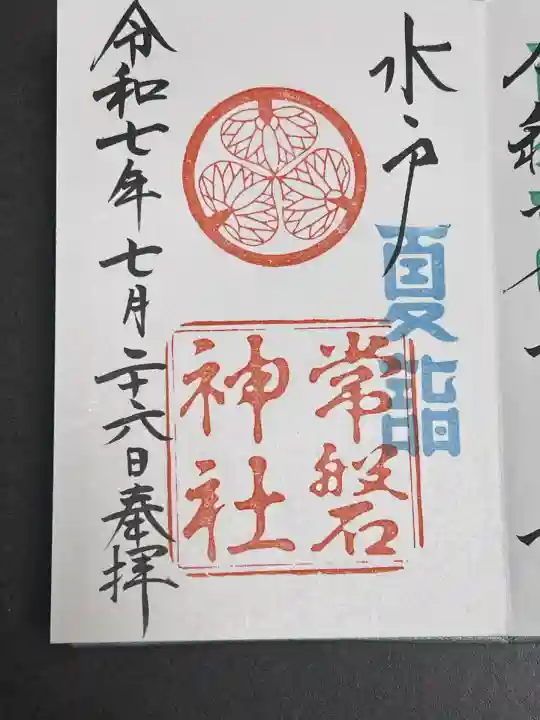 水戸
夏詣
常磐
神社
令和七年七月二十六日奉拝